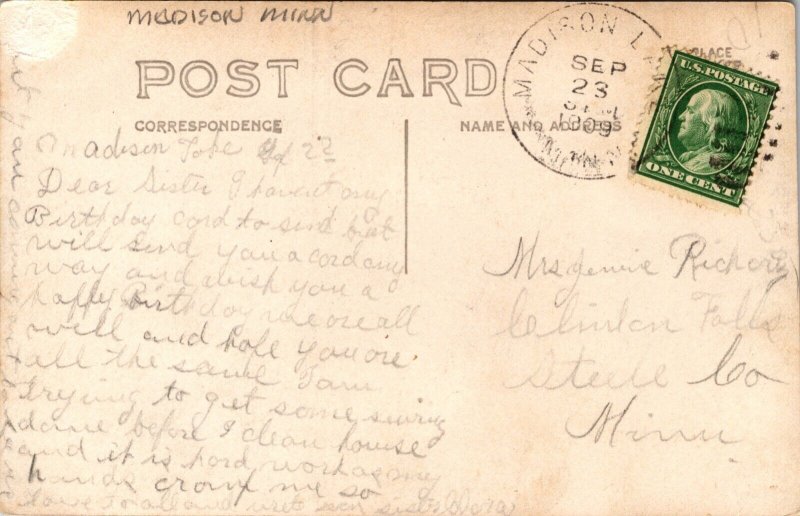 MADISON MINN
POST CARD
CORRESPONDENCE
NAME AND ADDRESS
PLACE
MADISON LAKE
SEP
23
1909
MINN.
U.S. POSTAGE
ONE CENT
Madison Lake 22
Dear Sister I havent any
Birthday cord to send but
will send you a cord any
way and wish you a
happy Birthday we ore all
well and hope you ore
all the same I am
trying to get some sewing
done before I clean house
and it is hord work as my
hands cromp me so
love to all and
Mrs Jennie
Clinton Falls
Steele Co
Minn